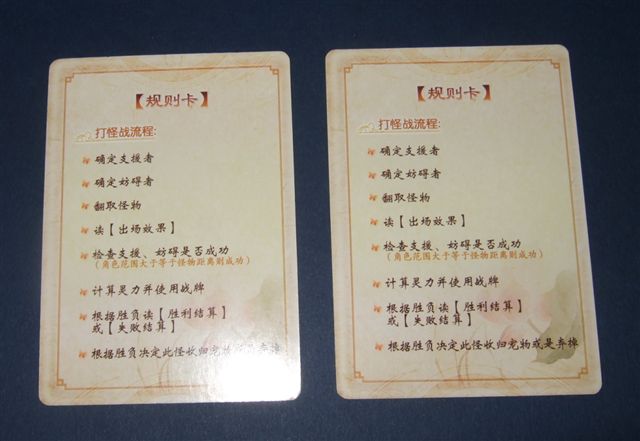 【规则卡】
打怪战流程:
确定支援者
确定妨碍者
翻取怪物
读【出场效果】
检查支援、妨碍是否成功
(角色范围大于等于怪物距离则成功)
计算灵力并使用战牌
根据胜负读【胜利结算】
或【失败结算】
根据胜负决定此怪收归宠物或是弃掉
【规则卡】
打怪战流程:
确定支援者
确定妨碍者
翻取怪物
读【出场效果】
检查支援、妨碍是否成功
(角色范围大于等于怪物距离则成功)
计算灵力并使用战牌
根据胜负读【胜利结算】
或【失败结算】
根据胜负决定此怪收归宠物或是弃掉